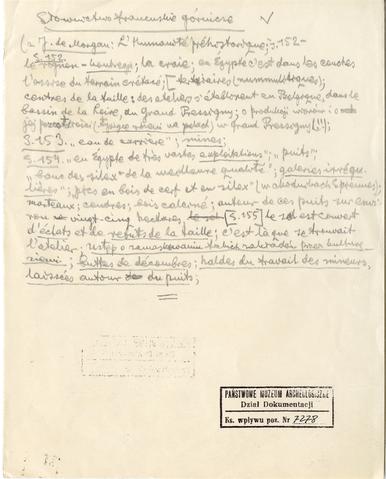 Słownictwo francuskie górnicze
(= J. de Morgan: L'Humanité préhistorique; S. 152-
S. 152
le rognon - , la craie; en Egypte c'est dans les couches
l'assise du terrain crétacé; tertiaires (nummulitiques);
centres de la taille: des ateliers s'établirent en Belgique, dans le
bassin de la Loire, du Grand Pressigny; o produkcji wiórów i o
jej w Grand Pressigny (!");
S. 153. „eau de carrière"; mines;
S. 154. „en Egypte de très vastes exploitations"; „puits"
„bancs des silex" de la meilleure qualité"; galeries irrégu-
lières"; „pics en bois de cerf et en silex" (w);
marteaux; cendres; bois calciné; autour de ces puits sur envi-
ron vingt-cinq hectares [S. 155] le sol est couvert
d'éclats et de rebuts de la taille; c'est là que se trouvait
l'atelier. Ustęp o takich zakładów
ziemi; buttes de décombres; haldes du travail des mineurs,
laissées autour du puits;
PAŃSTWOWE MUZEUM ARCHEOLOGICZNE
Dział Dokumentacji
Ks. wpływu poz. Nr 7278